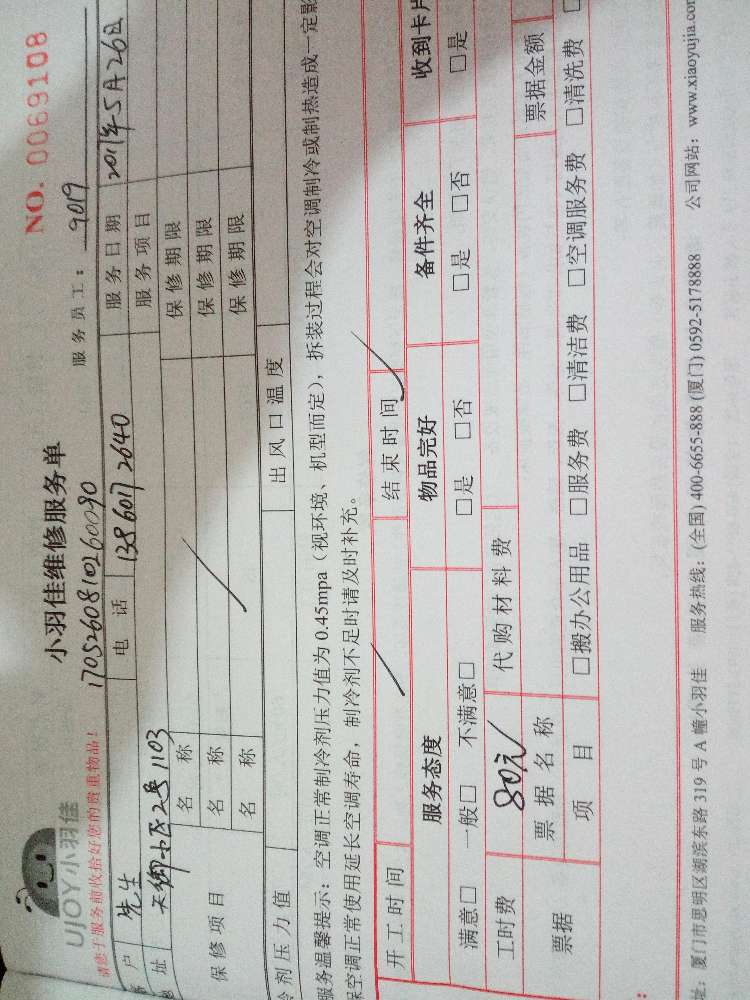 UJOY小羽佳
小羽佳维修服务单
NO. 0069108
请您于服务前收拾好您的贵重物品!
1705260810260090
服务员工: 9019
户 先生 电话 13860172640 服务日期 2017年5月26日
址 天御小区2号1103 服务项目
保修项目 名称 保修期限
名称 保修期限
名称 保修期限
冷剂压力值 出风口温度
服务温馨提示:空调正常制冷剂压力值为0.45mpa(视环境、机型而定),拆装过程会对空调制冷或制热造成一定影
保空调正常使用延长空调寿命,制冷剂不足时请及时补充。
开工时间 结束时间
服务态度 物品完好 备件齐全 收到卡片
满意□ 一般□ 不满意□ □是 □否 □是 □否 □是
工时费 80元 代购材料费
票据 票据名称 票据金额
项目 □搬办公用品 □服务费 □清洁费 □空调服务费 □清洗费
址:厦门市思明区湖滨东路319号A幢小羽佳 服务热线:(全国)400-6655-888(厦门)0592-5178888 公司网站:www.xiaoyujia.com